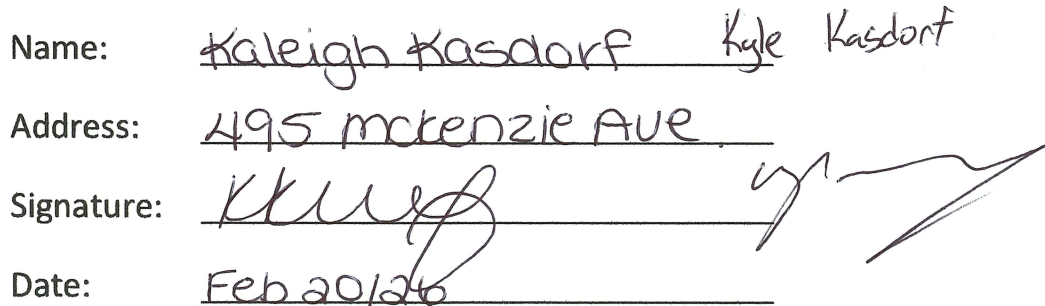 Name: Kaleigh Kasdorf Kyle Kasdorf
Address: 495 mckenzie Ave.
Signature:
Date: Feb 20/26